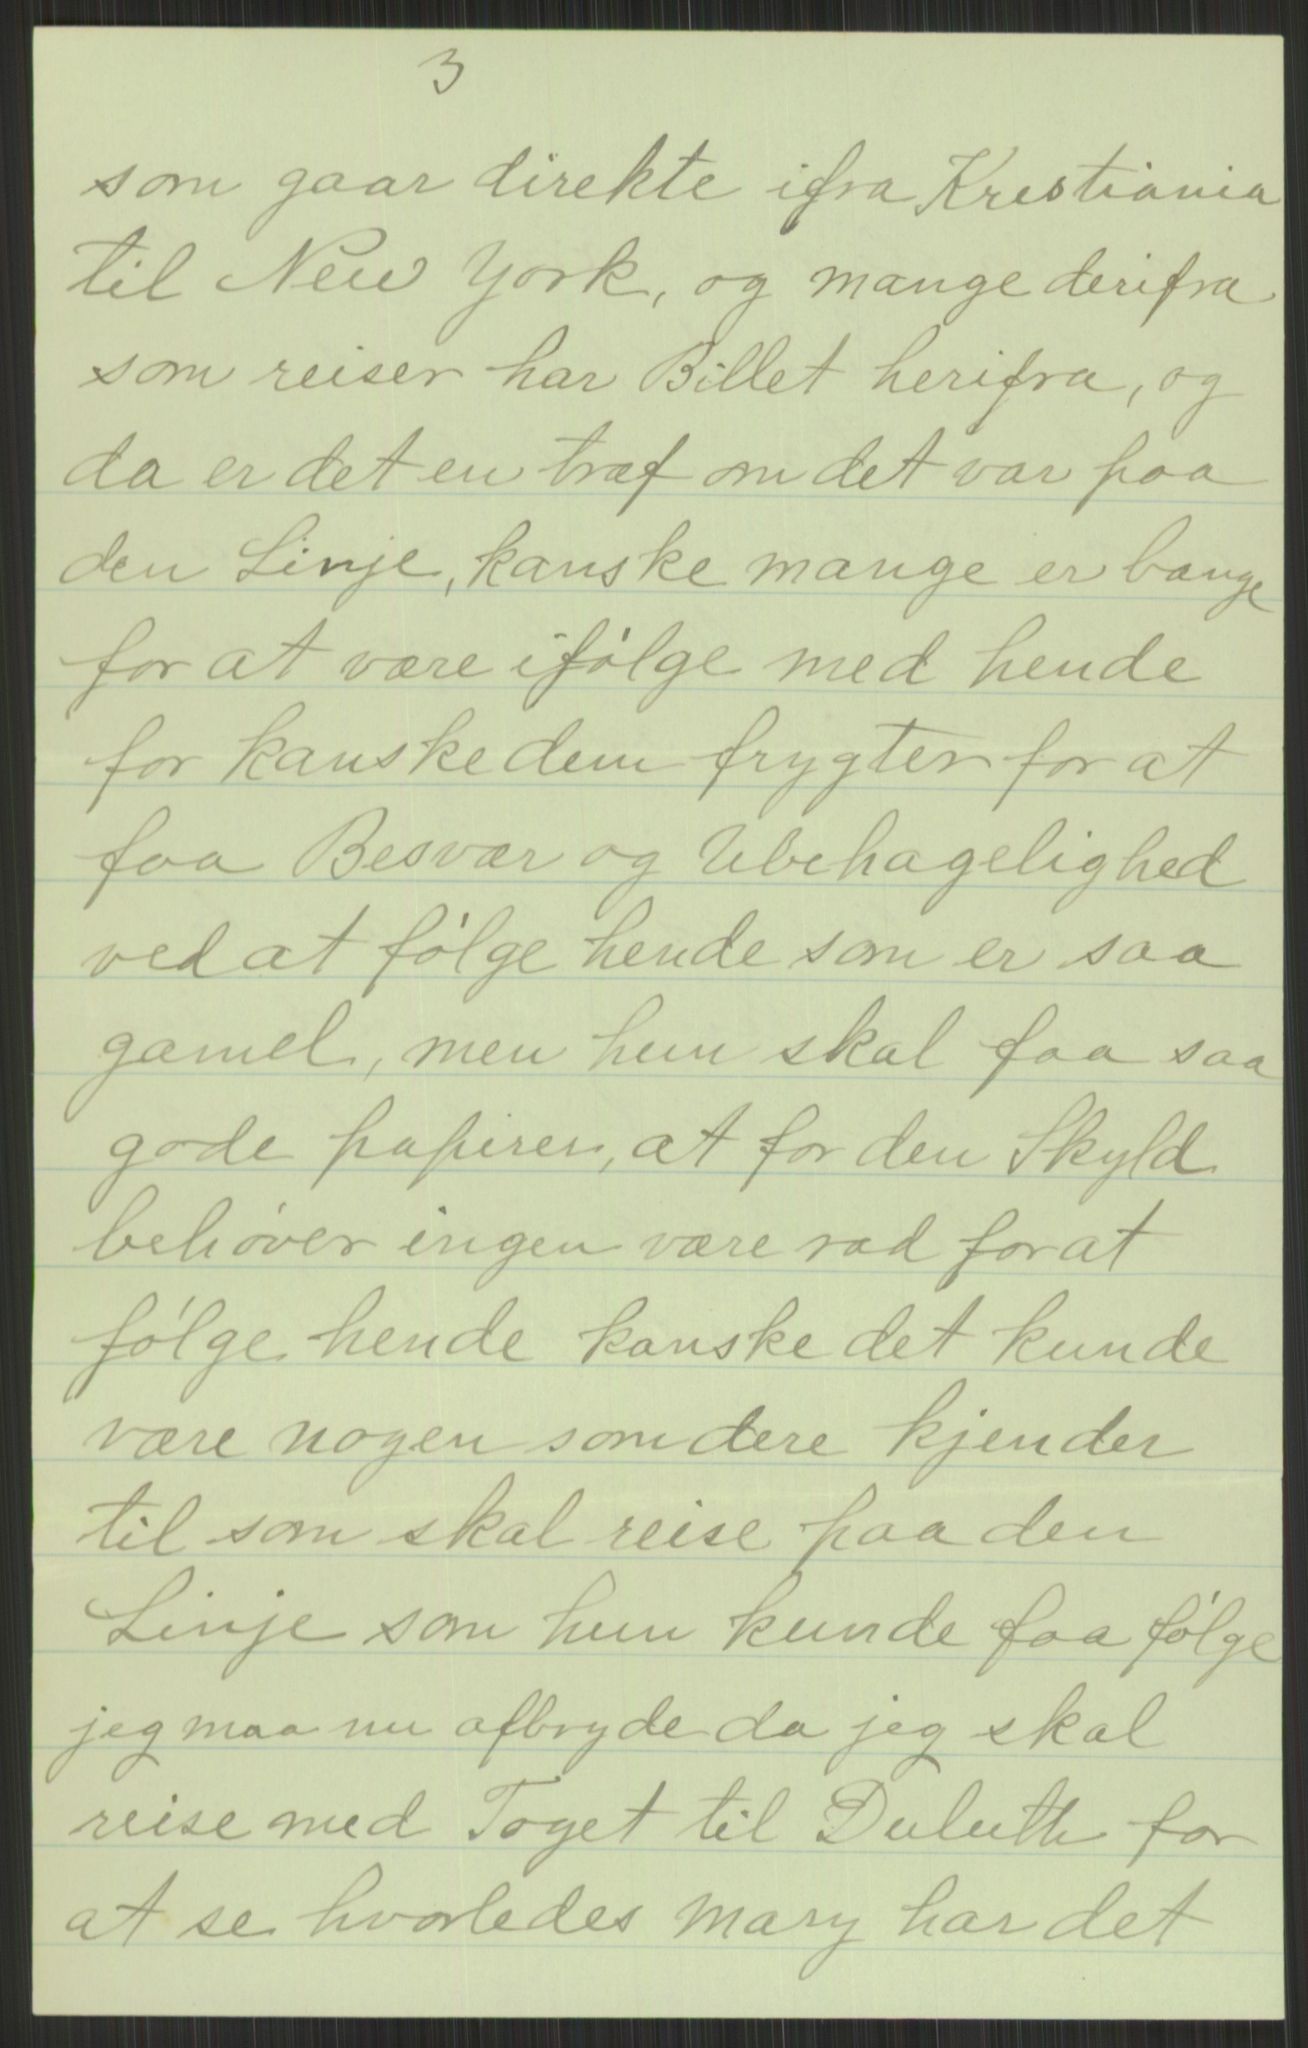 3
som gaar direkte ifra Kristiania
til New York, og mange derifra
som reiser har Billet herifra, og
da er det en træf om det var paa
den Linje, kanske mange er bange
for at være ifølge med hende
for kanske dem frygter for at
faa Besvær og Ubehagelighed
ved at følge hende som er saa
gamel, men hun skal faa saa
gode papirer, at for den Skyld
behøver ingen være rad for at
følge hende kanske det kunde
være nogen som dere kjender
til som skal reise paa den
Linje som hun kunde faa følge
jeg maa nu afbryde da jeg skal
reise med Toget til Duluth for
at se hvorledes Mary har det